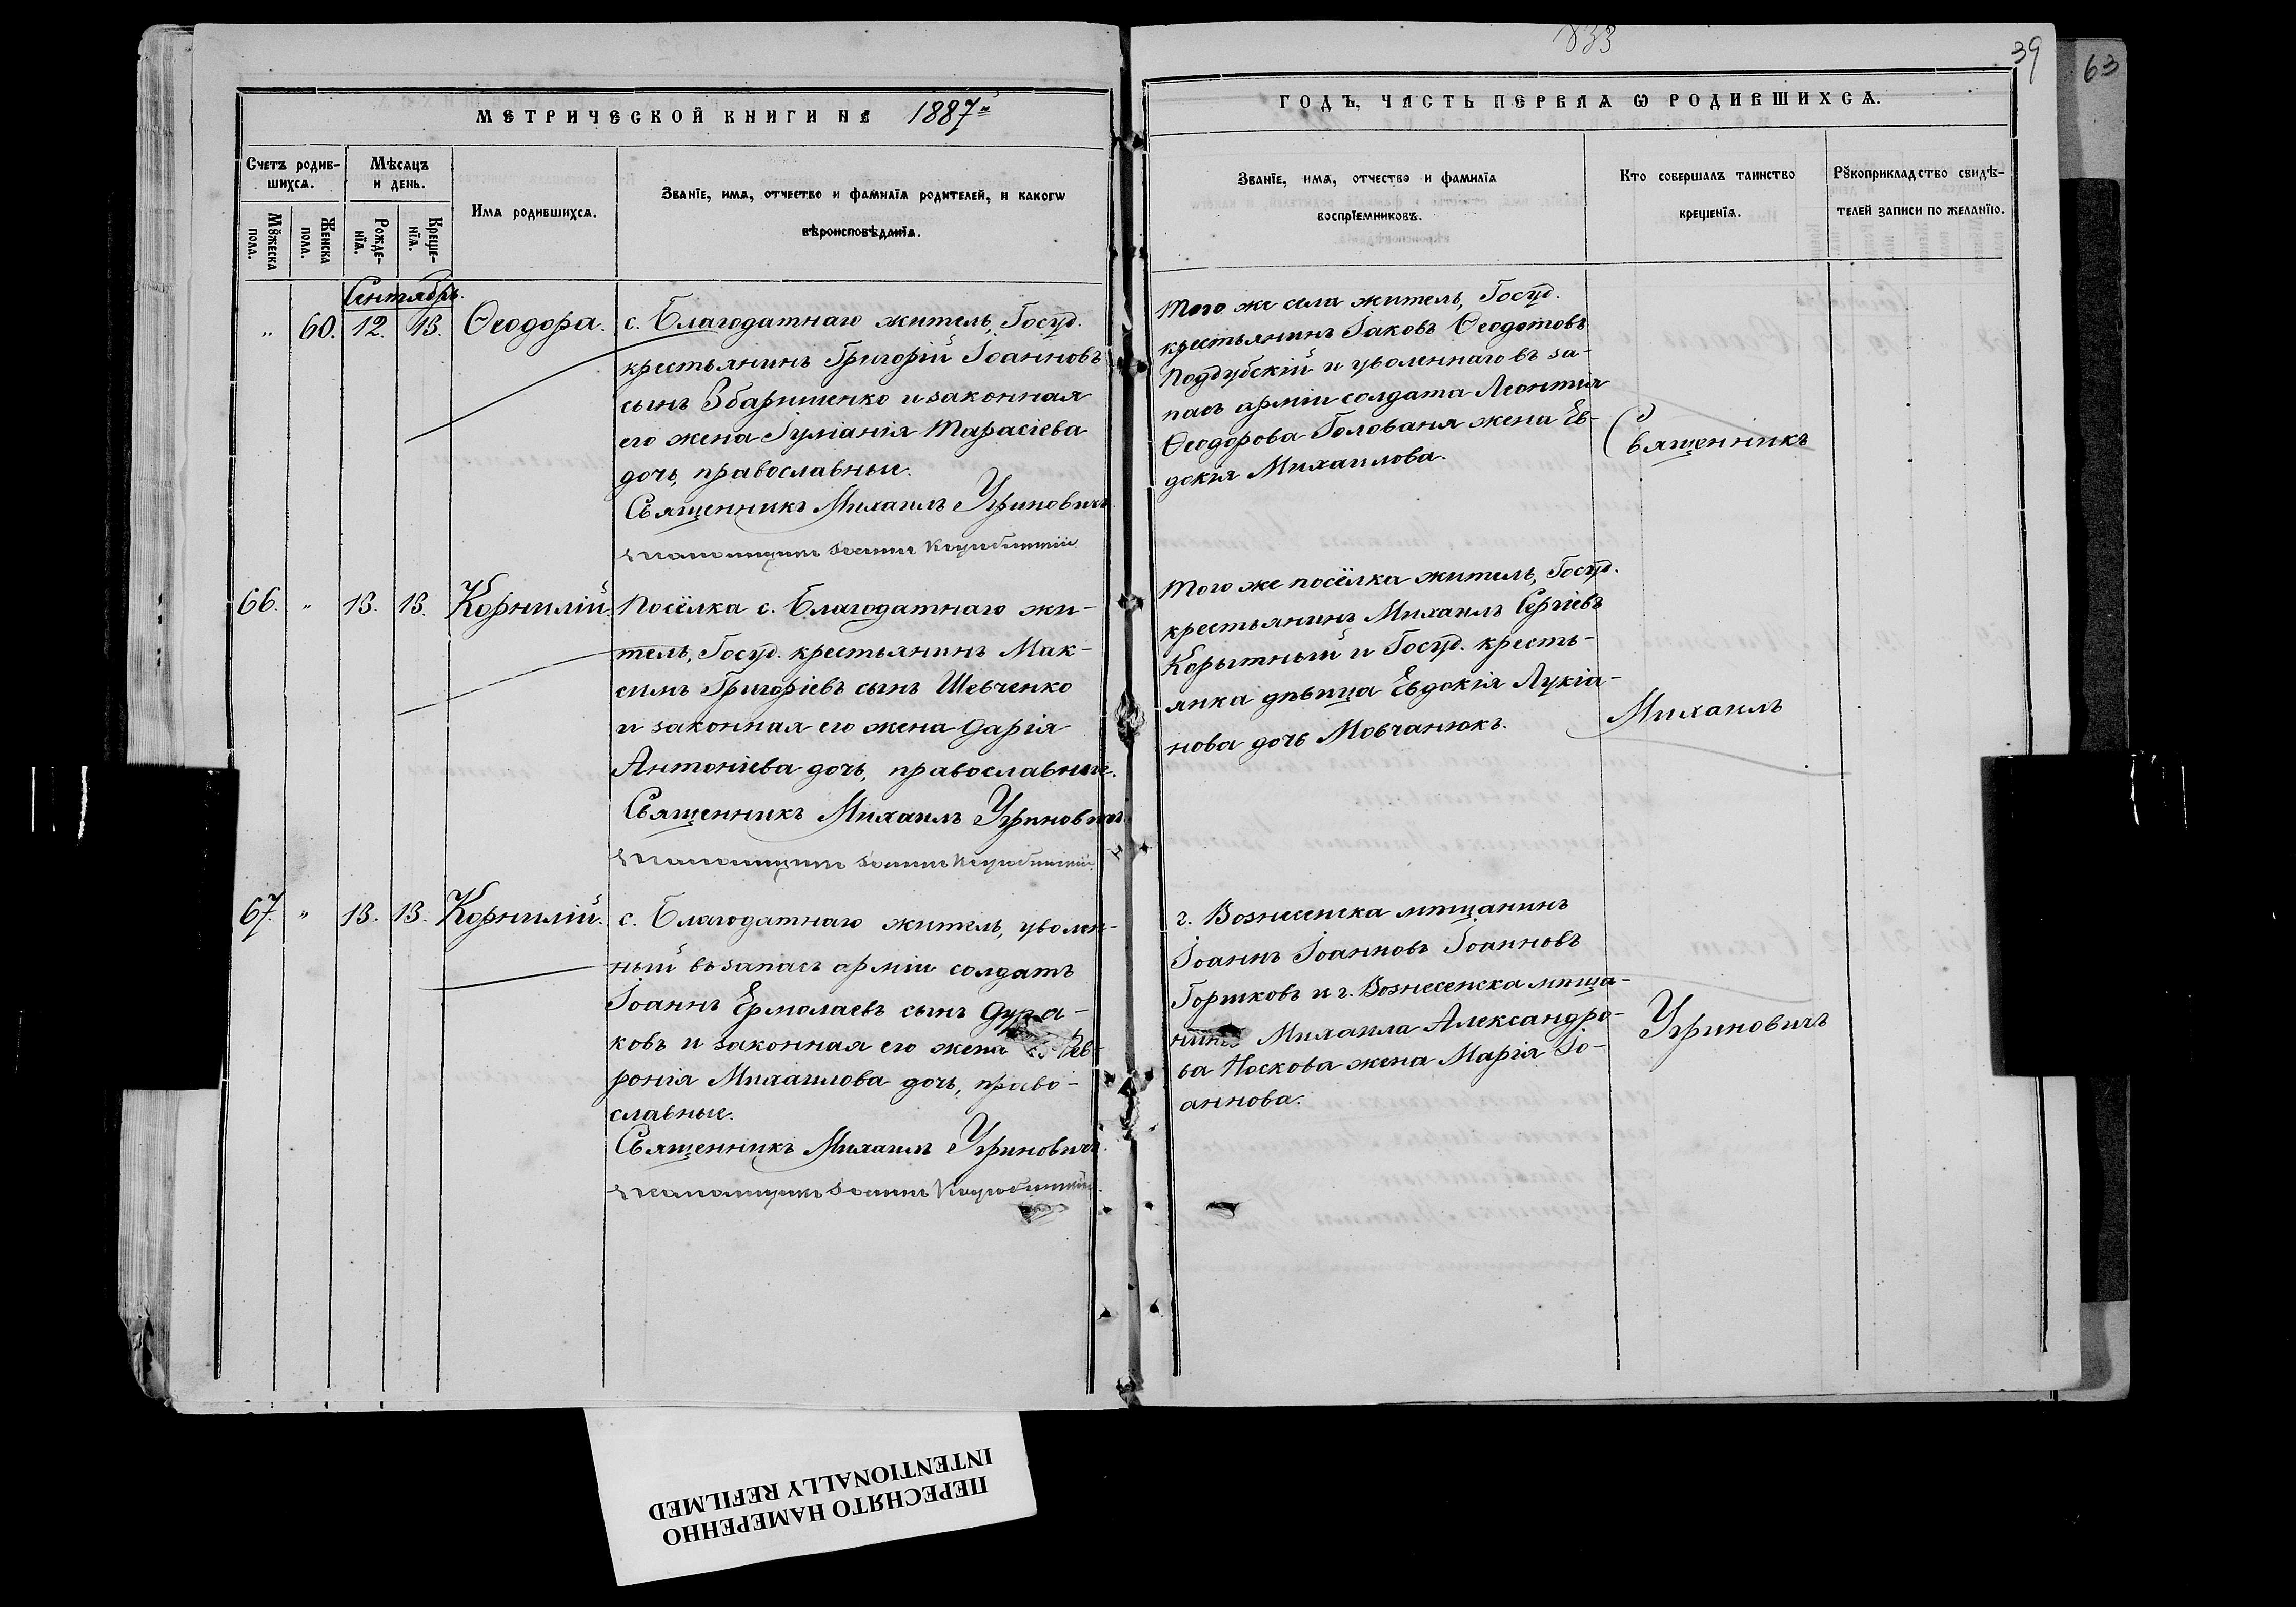 833
39
63
МЕТРИЧЕСКОЙ КНИГИ НА 1887й
ГОДЪ, ЧАСТЬ ПЕРВАЯ Ѡ РОДИВШИХСѦ.
Счетъ родив-
шихсѧ.
Мѣсѧцъ
и день.
Мꙋжеска
пола.
Женска
пола.
Рожде-
нїѧ.
Креще-
нїѧ.
Имѧ родившихсѧ.
Званїе, имѧ, отчество и фамилїѧ родителей, и какогѡ
вѣроисповѣданїѧ.
Званїе, имѧ, отчество и фамилїѧ
воспрїемниковъ.
Кто совершалъ таинство
крещенїѧ.
Рꙋкоприкладство свидѣ-
телей записи по желанїю.
Сентябрь.
„ 60. 12. 13. Ѳеодора.
с. Благодатнаго житель, Госуд.
крестьянинъ Григорій Іоанновъ
сынъ Збаришенко и законная
его жена Іуліанія Тарасіева
дочь, православные.
Священникъ Михаилъ Угриновичъ
Псаломщикъ Іоаннъ
Того же села житель, Госуд.
крестьянинъ Іаковъ Ѳеодотовъ
Поддубскій и уволеннаго въ за-
пасъ арміи солдата Леонтія
Ѳеодорова Голованя жена Ев-
докія Михаилова.
Священникъ
66. „ 13. 13. Корнилій.
Посёлка с. Благодатнаго жи-
тель, Госуд. крестьянинъ Мак-
симъ Григоріевъ сынъ Шевченко
и законная его жена Дарія
Антоніева дочь, православные.
Священникъ Михаилъ Угриновичъ
Псаломщикъ Іоаннъ
Того же посёлка житель, Госуд.
крестьянинъ Михаилъ Сергіевъ
Корытный и Госуд. кресть-
янка дѣвица Евдокія Лукіа-
нова дочь Мовчанюкъ.
Михаилъ
67. „ 13. 13. Корнилій.
с. Благодатнаго житель, уволен-
ный въ запасъ арміи солдатъ
Іоаннъ Ермолаевъ сынъ Дура-
ковъ и законная его жена Фев-
ронія Михаилова дочь, право-
славные.
Священникъ Михаилъ Угриновичъ.
Псаломщикъ Іоаннъ
г. Вознесенска мѣщанинъ
Іоаннъ Іоанновъ Іоанновъ
Горшковъ и г. Вознесенска мѣща-
нина Михаила Александро-
ва Носкова жена Марія Іо-
аннова.
Угриновичъ
ПЕРЕСНЯТО НАМЕРЕННО
INTENTIONALLY REFILMED